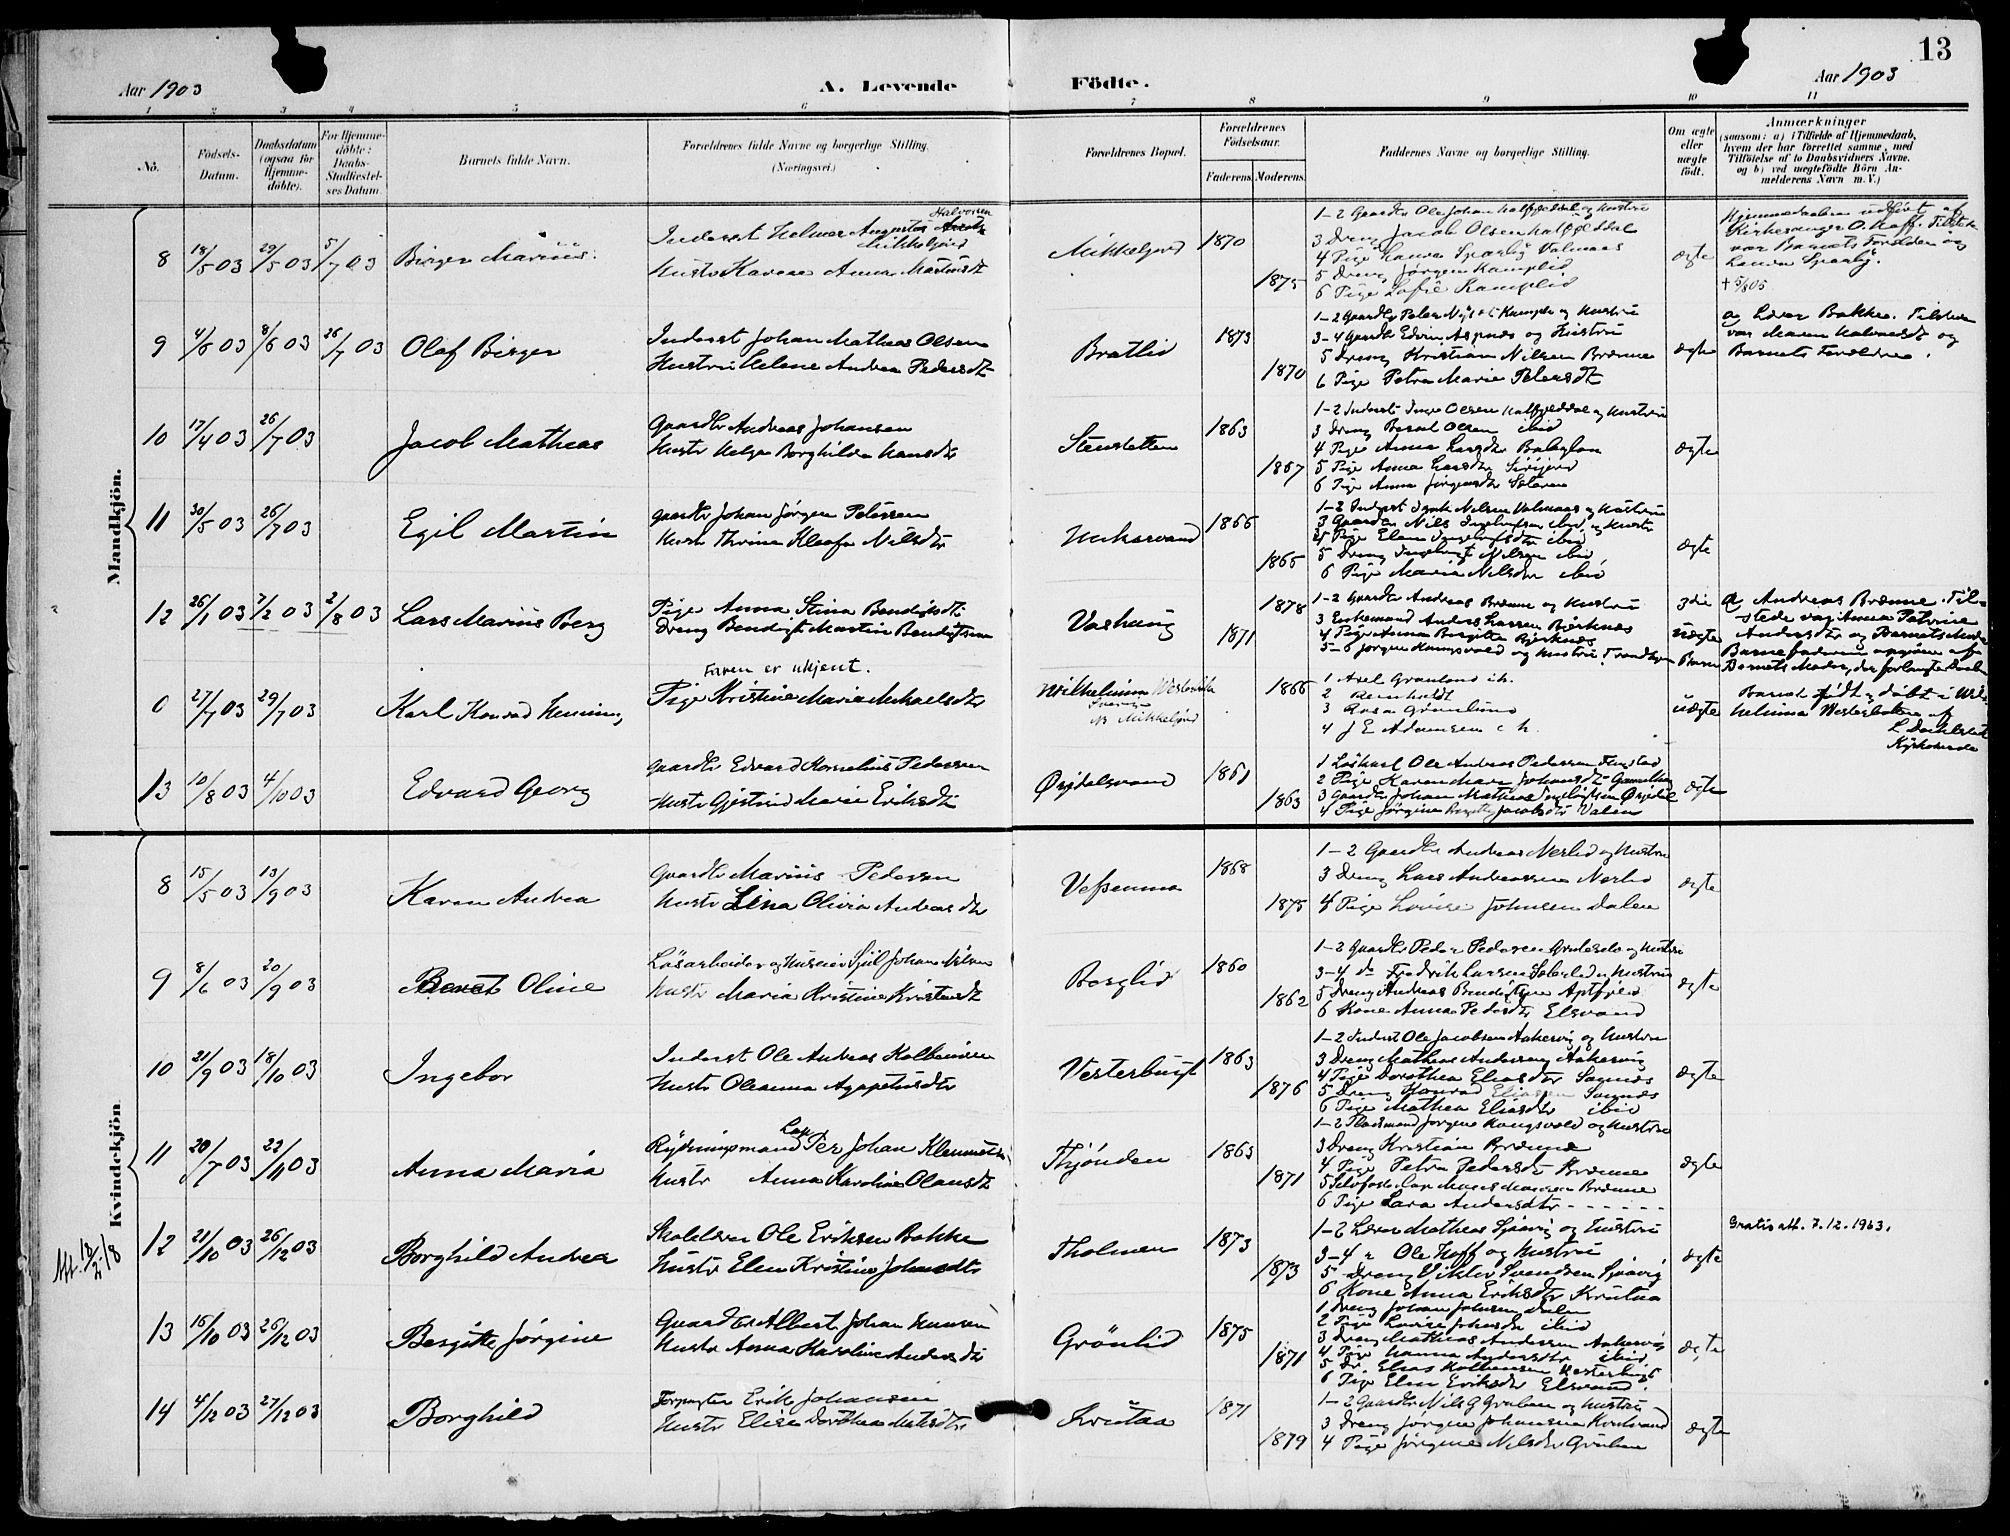 13
Aar 1903 A. Levende Födte. Aar 1903
1 2 3 4 5 6 7 8 9 10 11
No.
Födsels-
Datum.
Daabsdatum
(ogsaa for
Hjemme-
döbte).
For Hjemme-
döbte:
Daabs-
Stadfæstel-
ses Datum.
Barnets fulde Navn.
Forældrenes fulde Navne og borgerlige Stilling.
(Næringsvei.)
Forældrenes Bopæl.
Forældrenes
Födselsaar.
Faderens. Moderens.
Faddernes Navne og borgerlige Stilling.
Om ægte
eller
uægte
födt.
Anmærkninger
(saasom: a) i Tilfælde af Hjemmedaab,
hvem der har forrettet samme, med
Tilföielse af to Daabsvidners Navne.
og b) ved uægtefödte Börn An-
melderens Navn m. V.)
Mandkjön.
8 18/5 03 29/5 03 5/7 03 Birger Marius
Halvorsen
Inderst Helmer Augustus
Mikkeljord
Hustr Karen Anna
Mikkeljord 1870 1875
1-2 Gaardbr Ole Johan Halfjeldal og Hustru
3 Dreng Jacob Olsen Halfjeldal
4 Pige Laura Sparby
5 Dreng Jørgen Kamplid
6 Pige Sofie Kamplid
ægte
Hjemmedaaben udført af
Kirkesanger O. Hoff. Tilstede
var Barnets Forældre og
Laura Sparby.
† 5/8 05
9 4/6 03 8/6 03 26/7 03 Olaf Birger
Inderst Johan Mathias Olsen
Hustru Helene Andrea Pedersdt
Bratlid 1873 1870
3-4 Gaardb Edvin Aspnes og Hustru
5 Dreng Kristian Nilsen Brænne
6 Pige Petra Marie Pedersdt
ægte
af Lærer Bakken. Tilstede
var Maren Halvorsdt og
Barnets Forældre.
10 17/4 03 26/7 03 Jacob Mathias
Gaardbr Andreas Johansen
Hustr Helga Borghilda Hansdtr
Stensletten 1863 1867
1-2 Inderst Inge Olsen Halfjeldal og Hustru
3 Dreng Olsen ibid
4 Pige Anna Larsdtr
5 Pige Anna Larsdtr
6 Pige Anna Jørgensdt
ægte
11 30/5 03 26/7 03 Egil Martin
Gaardbr Johan Jørgen Petersen
Hustr Thrina Kleofa Nilsdtr
Unkervand 1866 1865
1-2 Inderst Isak Nilsen og Hustru
3 Gaardbr Nils Ingebrigtsen ibid og Hustr
Pige Elen ibid
5 Dreng Ingebrigt Nilsen ibid
6 Pige Maria Nilsdtr ibid
ægte
12 26/1 03 7/2 03 2/8 03 Lars Marius Berg
Pige Anna Stina Bendiksdt
Dreng Bendigt Martin Bendigtsen
Vashaug 1878 1871
1-2 Gaardbr Andreas Brænne og Hustru
3 Enkemand Anders Larsen Bjerknes
4 Pige Anna Birgitte Bjerknes
5-6 Jørgen Kongsvold og Hustru
3die
uægte
Barn
af Andreas Brænne. Til-
stede var Anna Petrine
Andersdtr og Barnets Moder
Barnefaderen opgiven af
Barnets Moder, der forlangte Daab
0 27/7 03 29/7 03 Karl Konrad Henning
Faren er ukjent.
Pige Kristine Maria Mikaelsdtr
Wilhelmina Westerbotten
Sverige
Mikkeljord 1866
1 Axel Grønlund
2 Reinholdt
3 Rosa Grønlund
4 J E Adamsen
uægte
Barnet født & døbt i Wil-
helmina Westerbotten af
L Dahlstedt
Kyrkoherde
13 10/8 03 4/10 03 Edvard Georg
Gaardbr Edvard Kornelius Pedersen
Hustr Gjertrud Marie Eriksdt
Ørjedalsvand 1861 1863
1 Løskarl Ole Andreas Pedersen
2 Pige Karen Marie Johansdt
3 Gaardbr Johan Mathias
4 Pige Jørgine Jacobsdtr Valen
ægte
Kvindekjön
8 15/5 03 13/9 03 Karen Andrea
Gaardbr Marius Pedersen
Hustr Lina Olivia Andreasdtr
Vefsenmo 1868 1875
1-2 Gaardbr Andreas Nerlid og Hustru
3 Dreng Lars Andreassen Nerlid
4 Pige Lovise Johnsen Dalen
ægte
9 8/6 03 20/9 03 Beret Oline
Løsarbeider og Huseier Sjul Johan Nilsen
Hustr Maria Kristine Kristensdt
Borglid 1860 1862
1-2 Gaardbr Peder Pedersen og Hustru
3-4 do Fredrik Larsen og Hustru
5 Dreng Andreas Bendigtsen Aptfjeld
6 Kone Anna Pedersdtr Elsvand
ægte
10 21/9 03 18/10 03 Ingebor
Inderst Ole Andreas Kolbeinsen
Hustr Oleanna Agapetusdtr
Vesterbugt 1863 1876
1-2 Inderst Ole Jacobsen Aakervig og Hustru
3 Dreng Mathias Andersen Aakervig
4 Pige Dorothea Eliasdtr Sagnes
5 Dreng Konrad Eliassen Sagnes
6 Pige Mathea Eliasdtr ibid
ægte
11 20/7 03 22/11 03 Anna Maria
Lap
Rydningsmand Per Johan Klemmetsen
Hustr Anna Karoline Olausdt
Thjønden 1863 1871
1-2 Pladsmand Jørgen Kongsvold og Hustru
3 Dreng Kristian Brænne
4 Pige Petra Pedersdt Brænne
5 Selvfost. Lap Brænne
6 Pige Lava Andersdtr
ægte
Att. 18/2 18
12 21/10 03 26/12 03 Borghild Andrea
Skolelærer Ole Eriksen Bakken
Hustr Elen Kristine Johnsdtr
Tholmen 1873 1873
1-2 Lærer Mathias Sjaavig og Hustru
3-4 " Ole Hoff og Hustru
5 Dreng Viktor Svendsen Sjaavig
6 Kone Anna Eriksdtr Krutaa
ægte
Gratis att. 7.12.1963.
13 15/10 03 26/12 03 Bergitte Jørgine
Gaardbr Albert Johan Hansen
Hustr Anna Karoline Andersdt
Grönlid 1875 1871
1 Dreng Johan Johnsen Dalen
2 Pige Lovise Johnsdtr ibid
3 Dreng Mathias Andersen Aakervig
4 Pige Hanna Andersdtr ibid
5 Dr. Elias Kolbeinsen Vesterbugt
6 Pige Elen Eriksdtr Elsvand
ægte
14 4/12 03 27/12 03 Borghild
Forpagter Erik Johansen
Hustr Elise Dorthea Matsdtr
Krutaa 1871 1879
1-2 Gaardbr Nils G Gruben og Hustru
3 Dreng Jørgen Johansen
4 Pige Jørgine Nilsdtr Gruben
ægte